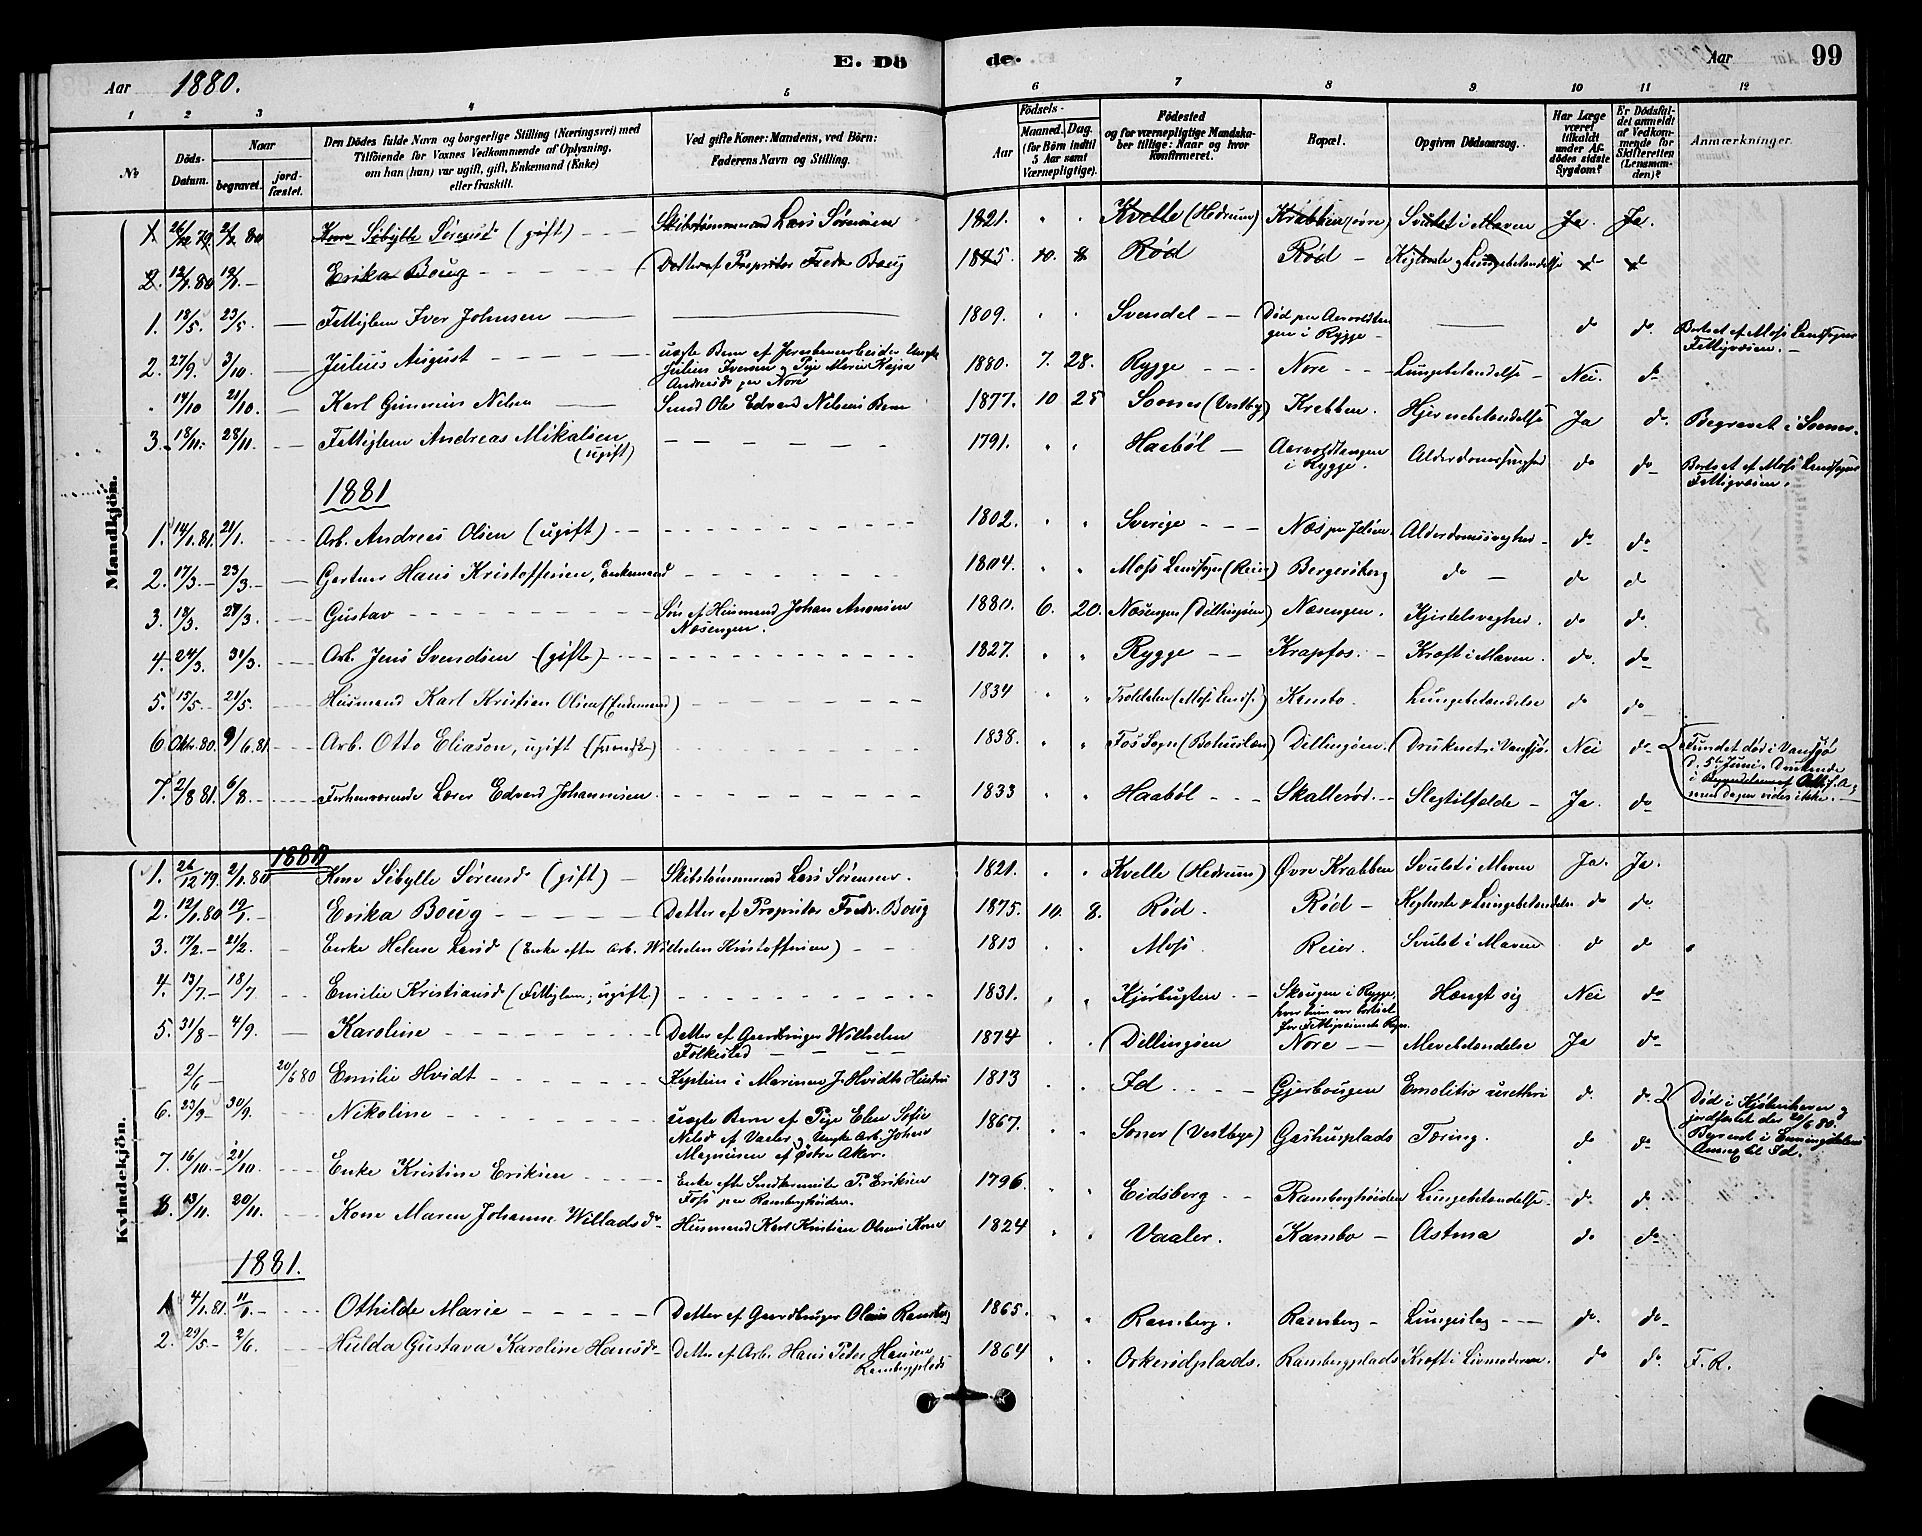 Aar 1880.
E. Dö
de.
Aar
99
1 2 3 4 5 6 7 8 9 10 11 12
No
Döds-Datum.
Naar
begravet. jord-fæstet.
Den Dödes fulde Navn og borgerlige Stilling (Næringsvei) med
Tilföiende for Voxnes Vedkommende af Oplysning,
om han (hun) var ugift, gift, Enkemand (Enke)
eller fraskilt.
Ved gifte Koner: Mandens, ved Börn:
Faderens Navn og Stilling.
Födsels-
Aar
Maaned. Dag.
(for Börn indtil
5 Aar samt
Værnepligtige).
Födested
og for værnepligtige Mandska-
ber tillige: Naar og hvor
konfirmeret.
Bopæl.
Opgiven Dödsaarsag.
Har Læge
været
tilkaldt
under Af-
dödes sidste
Sygdom?
Er Dödsfal-
det anmeldt
af Vedkom-
mende for
Skifteretten
(Lensman-
den)?
Anmærkninger.
Mandkjön.
1. 26/12 79 2/1 80 Kone Sibylle Sørensd (gift) Skibstømmermand Lars Sørensen 1821. Kvelle (Hedrum) Krabben (øvre) Svulst i Maven Ja Ja.
2. 12/1 80 19/1 Erika Boug Datter af Propritær Fredr Boug 1875. 10. 8 Rød Rød Kighoste og Lungebetændelse do do
1. 18/5. 23/5. Fattiglem Iver Johnsen 1809. Svendel Død paa Aarvoldtan
gen i Rygge do do. Bortsat af Moss Landsogns
Fattigvæsen.
2. 27/9. 3/10. Julius August uægte Barn af Jernbanearbeider Ungk
Julius Iversen og Pige Marie Kajsa
Andreasd paa Nore 1880. 7. 28. Rygge Nore Lungebetændelse Nei. do
14/10 21/10. Karl Gunerius Nilsen Smed Ole Edvard Nilsens Barn 1877. 10 25 Soner (Vestby) Krabben. Hjernebetændelse Ja do. Begravet i Soner.
3. 18/11. 28/11. Fattiglem Andreas Mikalsen
(ugift) 1791. Haabøl Aarvoldtangen
i Rygge. Alderdomssvaghed do do Bortsat af Moss Landsogns
Fattigvæsen.
1881
1. 14/1.81. 21/1. Arb. Andreas Olsen (ugift) 1802. Sverige Næs paa Jeløen. Alderdomssvaghed do do
2. 17/3. 23/3. Gartner Hans Kristoffersen, Enkemand 1804. Moss Landsogn (Reier) Bergersberg do do do
3. 18/3. 27/3. Gustav Søn af Husmand Johan Anonsen
Næsengen. 1880. 6. 20. Næsengen (Dillingøen) Næsengen. Kjertelsvaghed. do do.
4. 24/3. 31/3. Arb. Jens Svendsen (gift) 1827. Rygge Krapfos. Kræft i Maven. do. do
5. 15/5. 21/5. Husmand Karl Kristian Olsen (Enkemand) 1834 Trolddalen (Moss Lands.) Kambo Lungebetændelse do do
6. Oktr. 80. 9/6.81 Arb. Otto Eliason, ugift (svensk) 1838. Fos Sogn (Bohuslæn) Dillingøen. Druknet i Vansjø. Nei do Fundet død i Vansjø
D. 5te Juni. Druknede
i Begyndelsen af Oktbr. f. A;
men Dagen vides ikke.
7. 2/8 81. 6/8. Forhenværende Lærer Edvard Johannesen 1833 Haabøl Skallerød. Slagtilfælde Ja. do
Kvindekjön.
1880
1. 26/12 79. 2/1. 80 Kone Sibylle Sørensd (gift) Skibstømmermand Lars Sørensen. 1821. Kvelle (Hedrum) Øvre Krabben Svulst i Maven Ja. Ja.
2. 12/1.80 19/1. Erika Boug Datter af Propritær Fredr. Boug 1875. 10. 8. Rød. Rød Kighoste & Lungebetændelse do do.
3. 17/2. 21/2. Enke Helene Larsd (Enke efter Arb. Wilhelm Kristoffersen) 1813 Moss. Reier. Svulst i Maven do do
4. 13/7. 18/7 Emilie Kristiansd (Fattiglem; ugift.) 1831. Kjørbugten Skougen i Rygge,
hvor hun var bortsat
for Fattigvæsenets Regn. Hængt sig Nei do
5. 31/8 4/9. Karoline Datter af Gaardbruger Wilhelm
Folkestad 1874 Dillingøen Nore Mavebetændelse Ja do
2/6 20/6 80 Emilie Hvidt Kaptein i Marinen J. Hvidts Hustru 1813 Id Gjerbougen Emolitio urethri do. do. Død i Kjøbenhavn og
jordfæstet der 20/6 80.
Begravet i Enningdalens
Annex til Id.
6. 23/9 30/9. Nikoline uægte Barn af Pige Elen Sofie
Nilsd af Vaaler og Ungk. Arb. Johan
Magnusen af Østre Aker. 1867. Soner (Vestby) Gashusplads Tæring. do do
7. 16/10. 21/10. Enke Kristine Eriksen Enke efter Snedkermester P. Eriksen
Foss paa Ramberghøiden. 1796. Eidsberg Ramberghøiden Lungebetændelse do. do.
8. 13/11. 20/11. Kone Maren Johanne Willadsd Husmand Karl Kristian Olsens Kone 1824 Vaaler. Kambo Astma do do
1881.
1. 4/1. 81. 11/1. Othilde Marie Datter af Gaardbruger Olaus Ramberg 1865. Ramberg. Ramberg Lungeslag do. do
2. 29/5. 2/6. Hulda Gustava Karoline Hansd Datter af Arb. Hans Peter Hansen
Rambergplads 1864 Orkerødplads. Rambergplads Kræft i Livmoderen. do do. F. R.